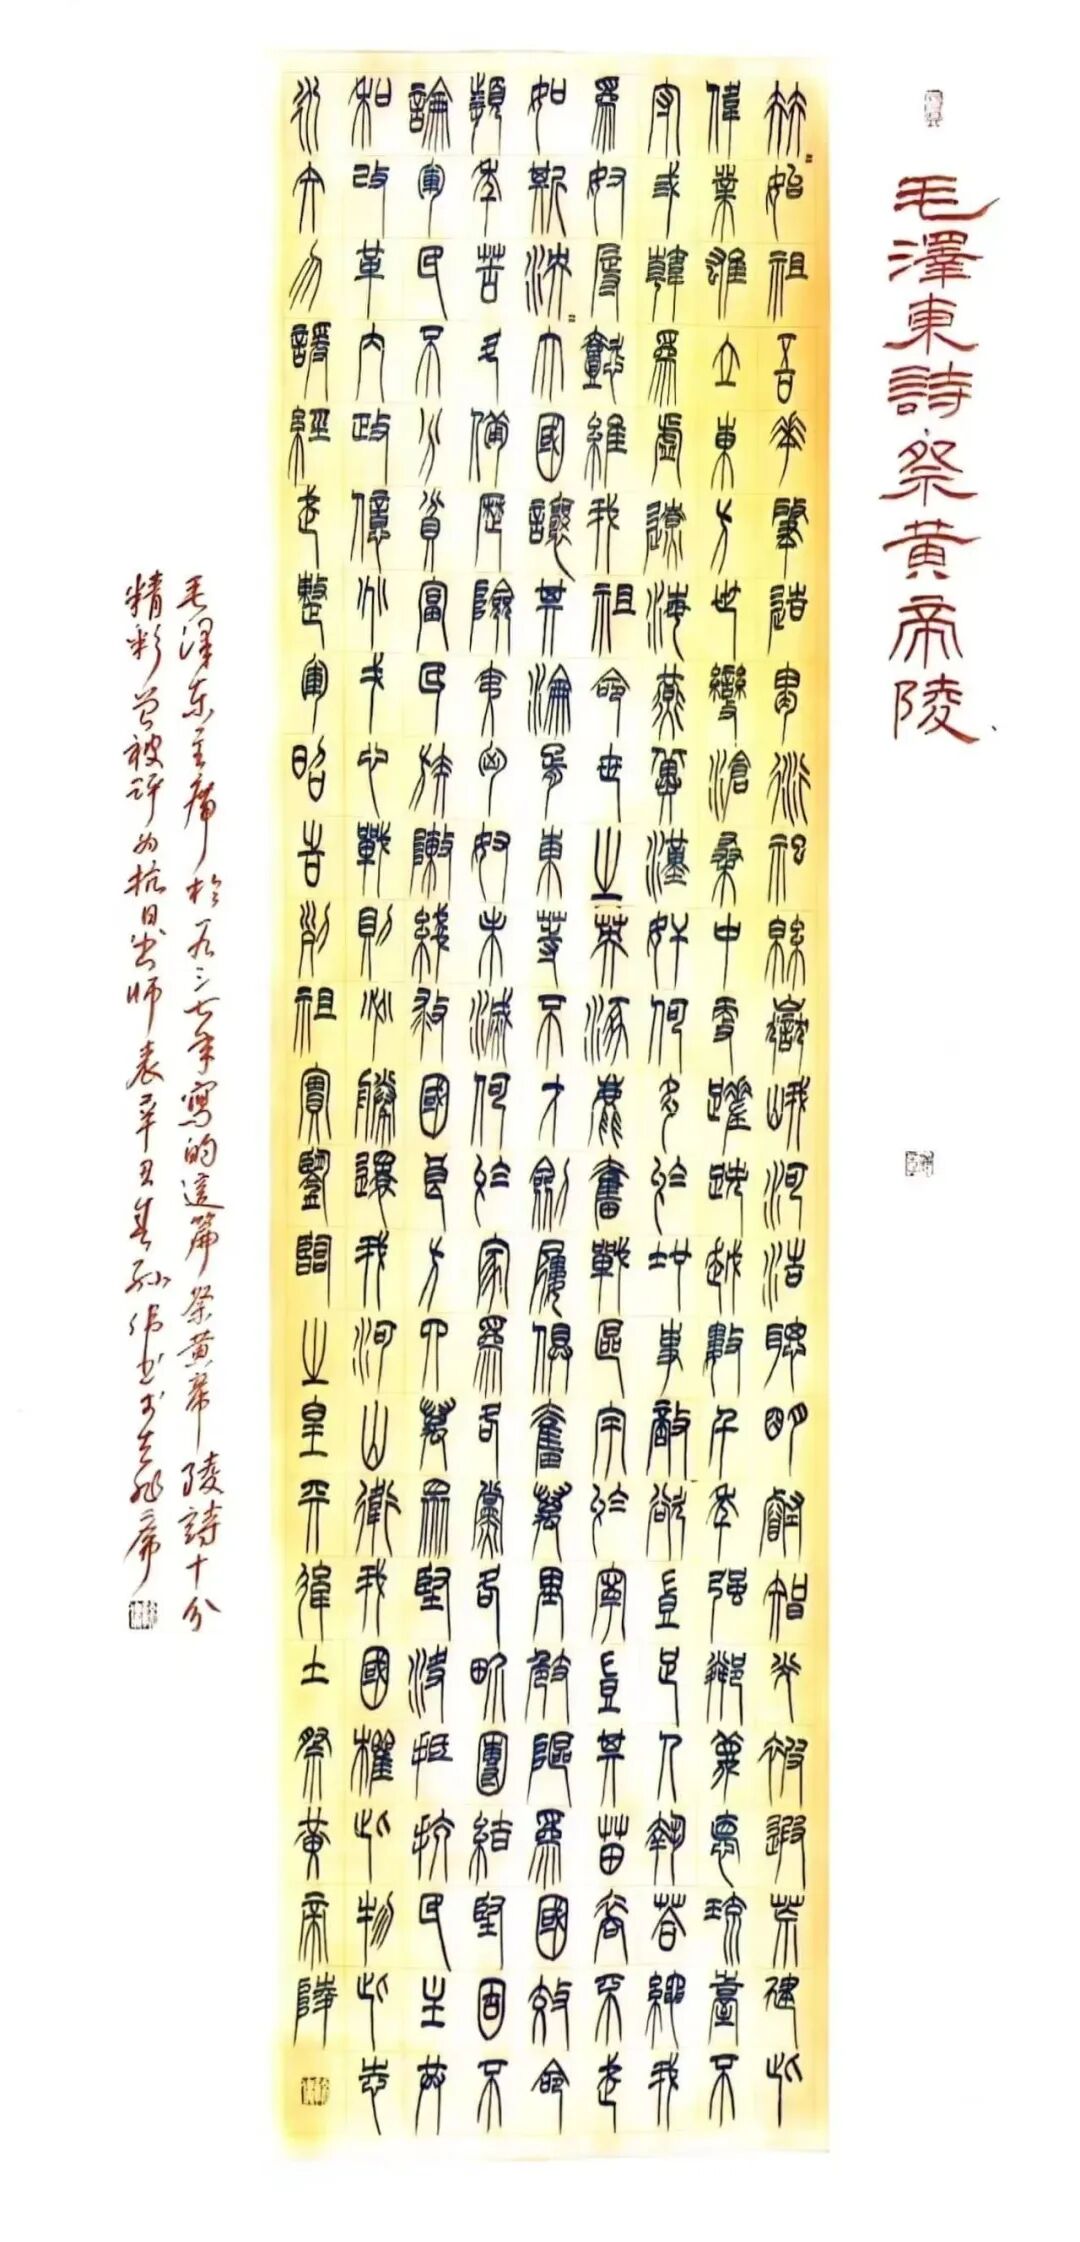 毛澤東詩祭黃帝陵
赫=始祖吾華肇造胄衍祀緜嶽峨河浩聰明睿智光被遐荒建此
偉業雄立東方世變滄桑中更蹉跌越數千年強鄰蔑德琉臺不
守弎韓為虛遼海燕冀漢奸何多以地事敵欲豈足人執笞繩我
為奴辱懿維我祖命世之英涿鹿奮戰區宇以寧豈其苗裔不武
如斯泱=大國讓其淪胥東等不才劍屨俱奮萬里崎嶇為國效命
頻年苦鬥備歷險夷匈奴未滅何以家為各黨各界團結堅固不
論軍民不分貧富民族陣綫救國良方四萬眾堅決抵抗民主共
和改革內政億兆弌心戰則必勝還我河山衛我國權此物此志
永矢勿諼經武整軍昭告列祖實鑒臨之皇天后土祭黃帝陵
毛澤东主席於一九三七年寫的這篇祭黃帝陵詩十分
精彩曾被评为抗日出师表辛丑春孙伟书於